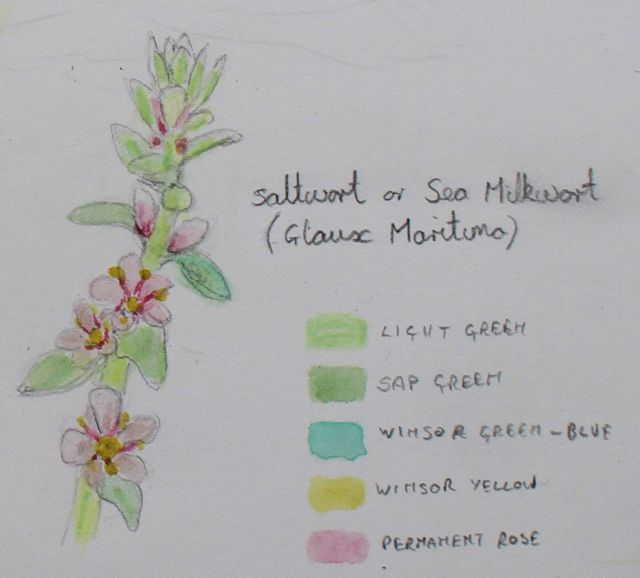 Saltwort or Sea Milkwort
(Glaux Maritima)
LIGHT GREEN
SAP GREEN
WINSOR GREEN - BLUE
WINSOR YELLOW
PERMANENT ROSE